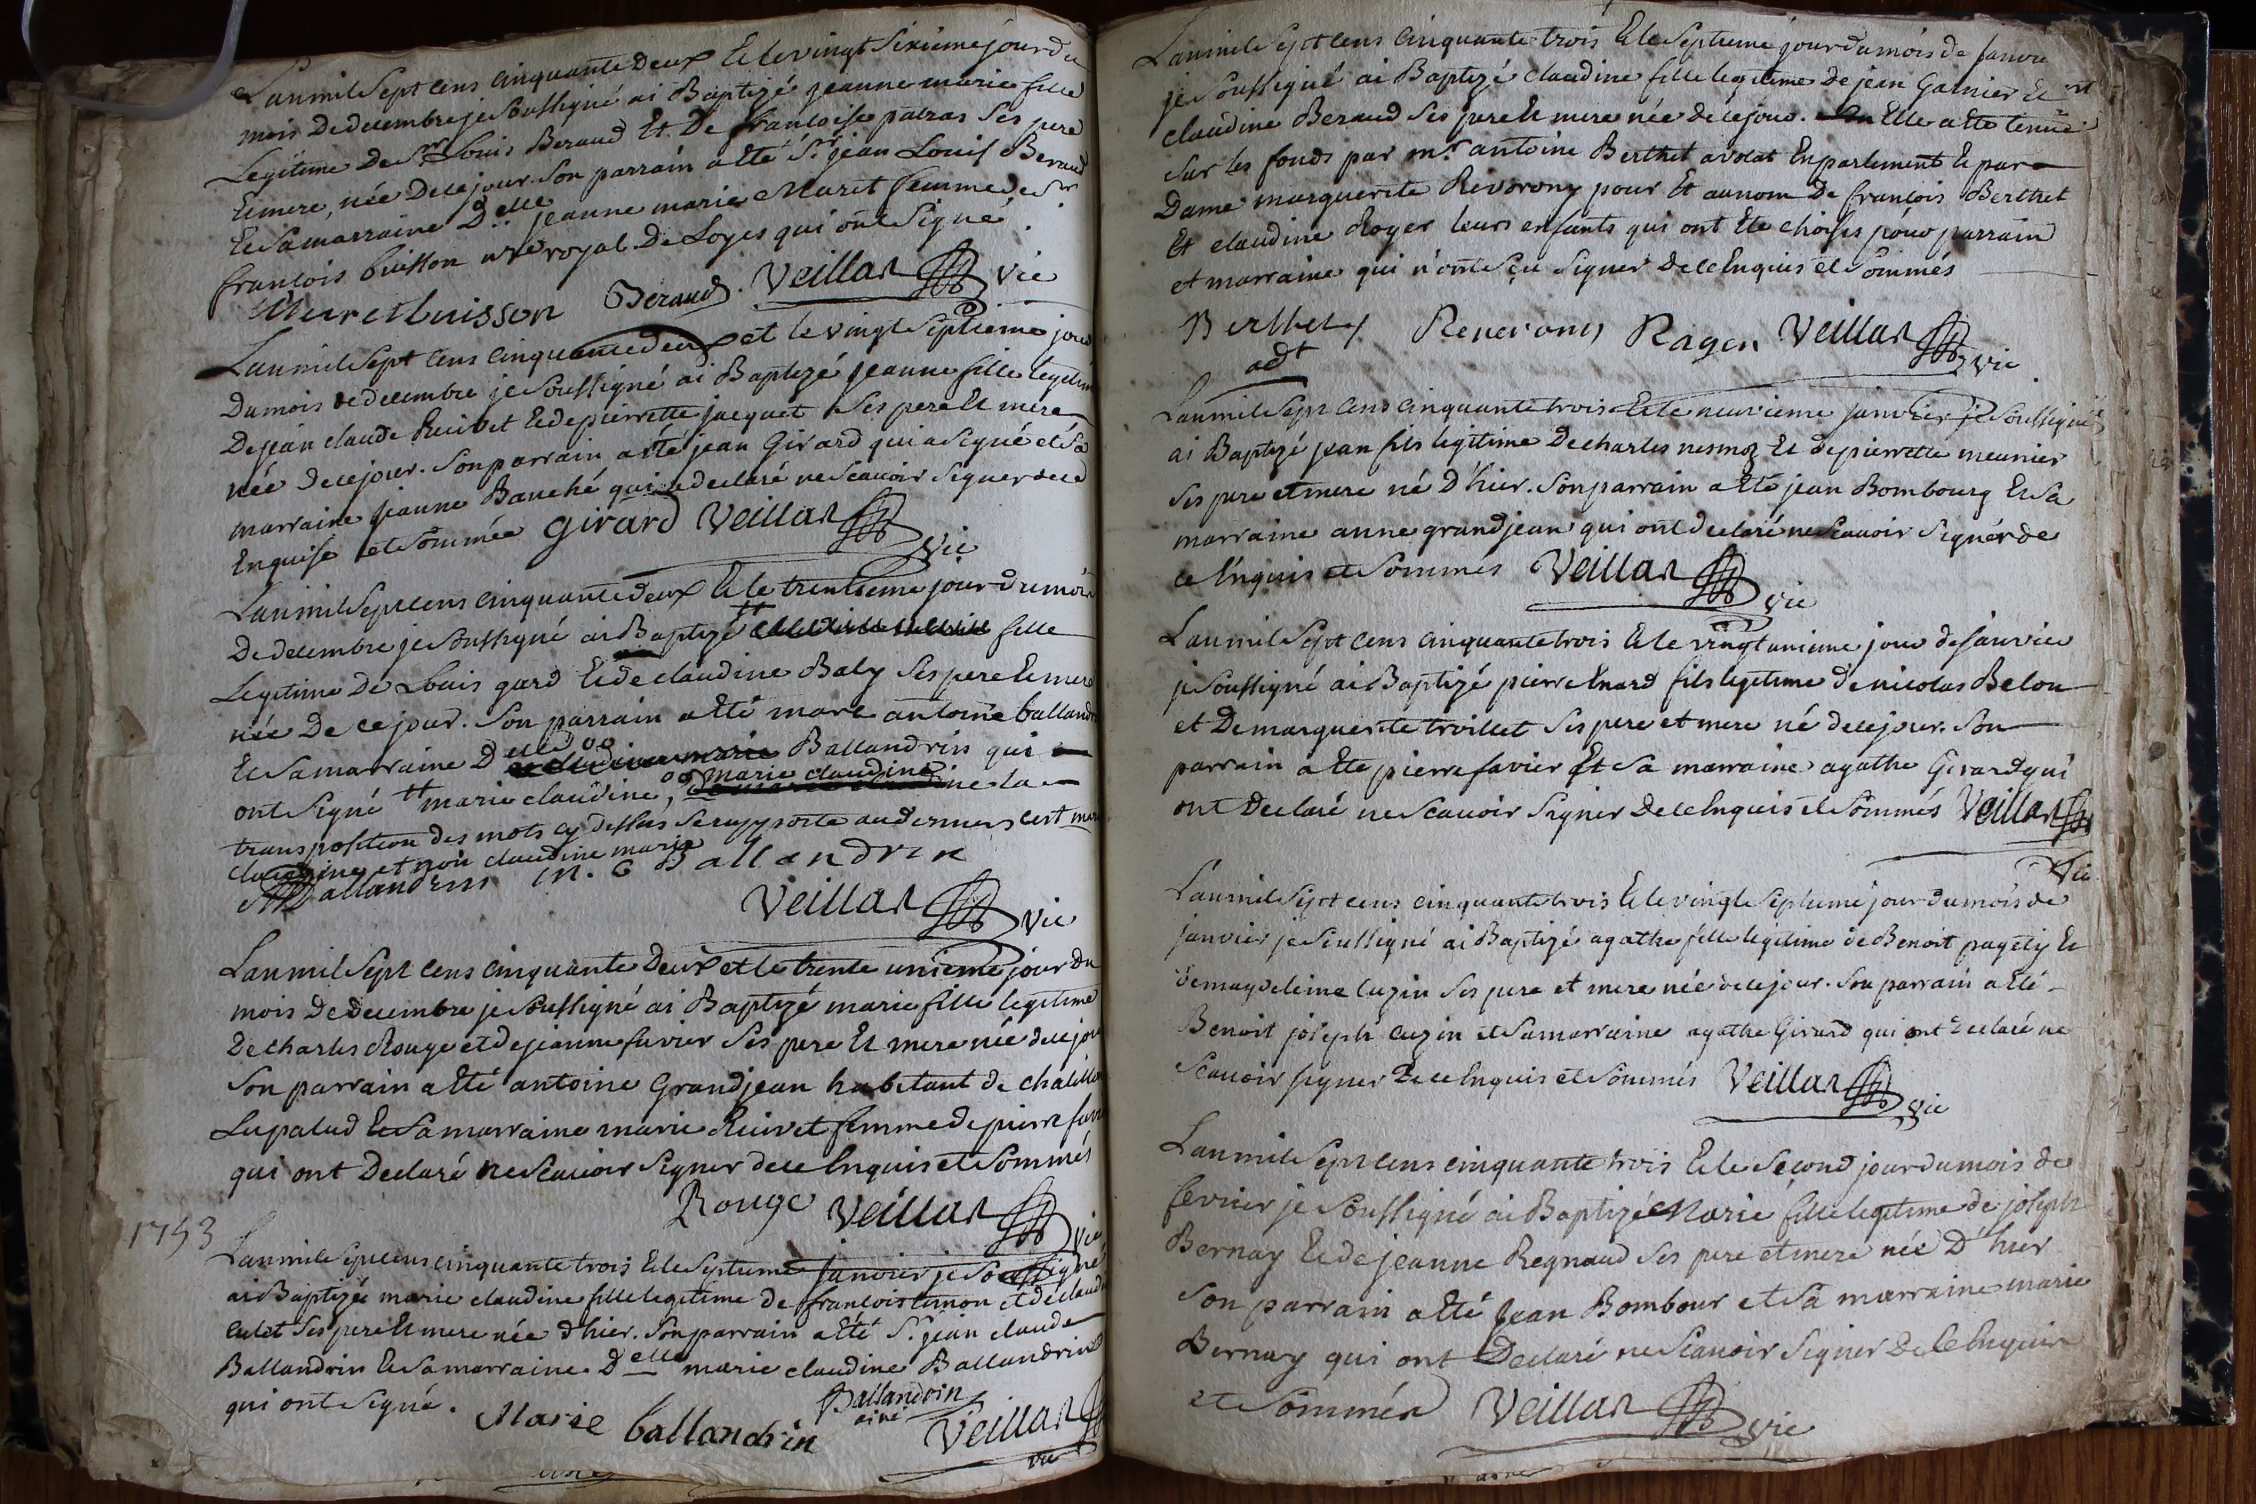 L'an mil Sept cens cinquante Deux Et le vingt Sixieme jour du
mois De decembre je Soussigné ai Baptizé jeanne marie fille
Legitime De Sr Louis Beraud Et De francoise patras Ses pere
Et mere, née De ce jour. Son parrain a Eté Sr. jean Louis Beraud
Et Sa marraine D.elle jeanne marie Muret femme de Sr
francois buisson nre royal De Loyes qui ont Signé.
Muret buisson Beraud. Veillas vic
L'an mil Sept cens cinquante deux et le vingt Septieme jour
Du mois de decembre je Soussigné ai Baptizé jeanne fille legitime
De jean claude Ruivet Et de pierrette jacquet Ses pere Et mere
née De ce jour. Son parrain a Eté jean Girard qui a Signé et Sa
marraine jeanne Bauché qui a declaré ne Scavoir Signer de ce
Enquise et Sommée Girard Veillas vic
L'an mil Sept cens cinquante deux Et le trentieme jour du mois
De decembre je Soussigné ai Baptizé tt fille
Legitime De Louis gard Et de claudine Baly Ses pere Et mere
née De ce jour. Son parrain a Eté marc antoine ballandrin
Et Sa marraine Delle claudine marie Ballandrin qui
ont Signé tt marie claudine, marie claudine la
transposition des mots cy dessus Se rapporte au dernier, c'est marie
claudine et non claudine marie
Ballandrin m. C Ballandrin
Veillas vic
L'an mil Sept cens cinquante Deux et le trente unieme jour Du
mois De decembre je Soussigné ai Baptizé marie fille legitime
De charles Rouge et de jeanne favier Ses pere Et mere née de ce jour
Son parrain a Eté antoine Grandjean habitant de chatillon
La palud Et Sa marraine marie Ruivet femme de pierre favier
qui ont Declaré ne Scavoir Signer de ce Enquis et Sommés
Rouge Veillas vic
1753
L'an mil Sept cens cinquante trois Et le Septieme janvier je Soussigné
ai Baptizé marie claudine fille legitime de francois timon et de claudine
culet Ses pere Et mere née d'hier. Son parrain a Eté S.r jean claude
Ballandrin Et Sa marraine Delle marie claudine Ballandrin
qui ont Signé. Marie ballandrin Ballandrin
ainé Veillas
vic
L'an mil Sept cens cinquante trois Et le Septieme jour du mois de janvier
je Soussigné ai Baptizé claudine fille legitime De jean Garnier Et
claudine Beraud Ses pere Et mere née de ce jour. Elle a Eté tenue
Sur les fonds par m.r antoine Berthet avocat En parlement Et par
Dame marguerite Reverony pour Et au nom De francois Berthet
Et claudine Royer leurs enfants qui ont Eté choisis pour parrain
et marraine qui n'ont Scu Signer De ce Enquis et Sommés
Berthet Reverony Rager Veillas
adt vic
L'an mil Sept cens cinquante trois Et le neuvieme janvier je Soussigné
ai Baptizé jean fils legitime De charles nesmoz Et de pierrette meunier
Ses pere et mere né D'hier. Son parrain a Eté jean Bombourg Et Sa
marraine anne grandjean qui ont declaré ne Scavoir Signer de
ce Enquis et Sommés Veillas vic
L'an mil Sept cens cinquante trois Et le vingt unieme jour de janvier
je Soussigné ai Baptizé pierre Enard fils legitime de nicolas Belon
et De marguerite troillet Ses pere et mere né de ce jour. Son
parrain a Eté pierre favier Et Sa marraine agathe Girard qui
ont Declaré ne Scavoir Signer De ce Enquis et Sommés Veillas
Vic
L'an mil Sept cens cinquante trois Et le vingt Septieme jour du mois de
janvier je Soussigné ai Baptizé agathe fille legitime de Benoit pagety Et
de magdeleine cuzin Ses pere et mere née de ce jour. Son parrain a Eté
Benoit joseph cuzin et Sa marraine agathe Girard qui ont declaré ne
Scavoir signer De ce Enquis et Sommés Veillas vic
L'an mil Sept cens cinquante trois Et le Second jour du mois de
fevrier je Soussigné ai Baptizé Marie fille legitime de joseph
Bernay Et de jeanne Regnaud Ses pere et mere née D'hier
Son parrain a Eté Jean Bombour et Sa marraine marie
Bernay qui ont Declaré ne Scavoir Signer De ce Enquis
et Sommés Veillas vic